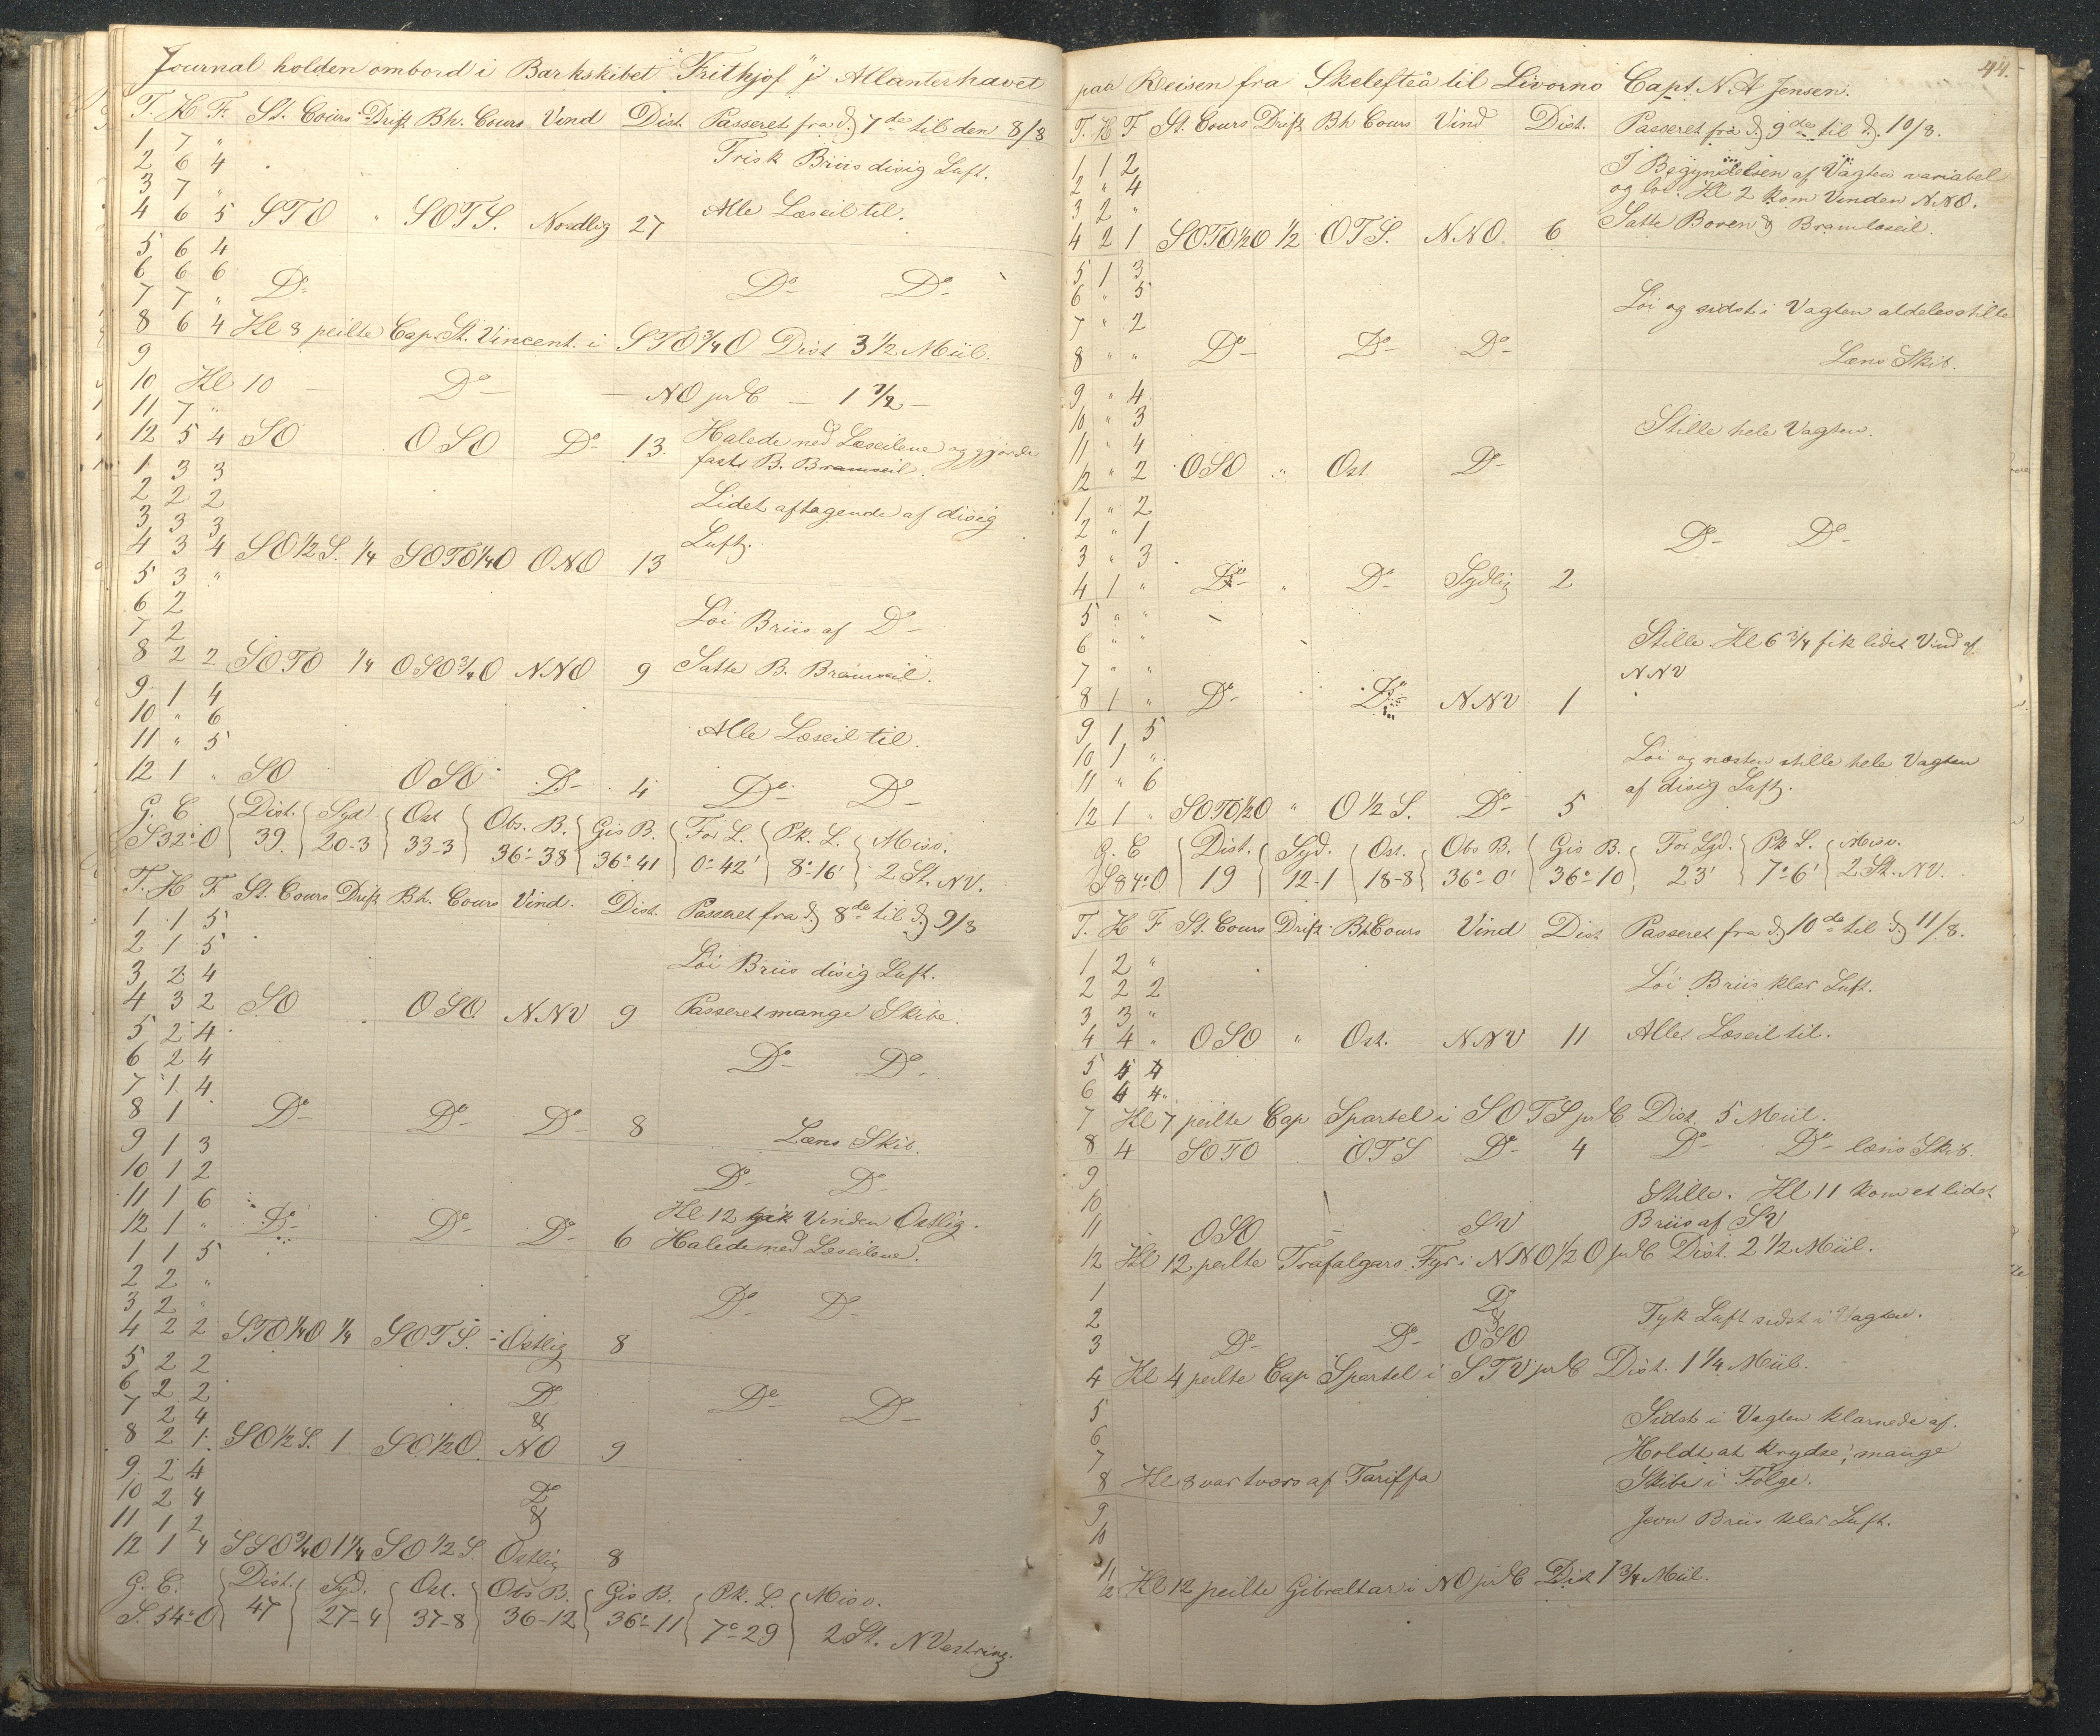 Journal holden ombord i Barkskibet "Frithjof" i Atlanterhavet
T. K F. St. Cours Drift Bh. Cours Vind Dist. Passeret fra d. 7de til den 8/8
1 7 "
2 6 4 Frisk Briis disig Luft.
3 7 "
4 6 5 STO " SOTS. Nordlig 27 Alle Læseil til.
5 6 4
6 6 6 Do Do Do
7 7 "
8 6 4 Kl 8 peilte Cap. St. Vincent. i STO 3/4 O Dist 3 1/2 Miil.
9
10 Kl 10 — Do — NO pr C — 1 1/2 —
11 7 "
12 5 4 SO OSO Do 13. Halede ned Læseilene og gjorde
1 3 3 fast B. Bramseil.
2 2 2
3 3 3 Lidet aftagende af disig
4 3 4 SO 1/2 S. 1/4 SOTO 1/4 O ONO 13 Luft.
5 3 "
6 2
7 2 Løi Briis af Do
8 2 2 SOTO 1/4 OSO 3/4 O NNO 9 Satte B. Bramseil.
9 1 4
10 " 6
11 " 5 Alle Læseil til.
12 1 " SO OSO Do 4 Do Do
G. C Dist. Syd Ost Obs. B. Gis B. For L. Pk. L. Misv.
S 32° O 39. 20-3 33-3 36°-38 36°-41 0°-42' 8°-16' 2 St. NV.
T. K F St. Cours Drift Bh. Cours Vind. Dist. Passeret fra d 8de til d 9/8
1 1 5
2 1 5 Løi Briis disig Luft.
3 2 4
4 3 2 SO OSO NNV 9 Passeret mange Skibe.
5 2 4
6 2 4 Do Do
7 1 4
8 1 Do Do Do 8
9 1 3 Læns Skib.
10 1 2 Do Do
11 1 6
12 1 " Do Do Do 6 Kl 12 gik Vinden Ostlig.
1 1 5 Halede ned Læseilene.
2 2 "
3 2 " Do Do
4 2 2 STO 1/4 O 1/4 SOTS. Ostlig 8
5 2 2
6 2 2 Do Do Do
7 2 4 &
8 2 1 SO 1/2 S. 1 SO 1/2 O. NO 9
9 2 4
10 2 4 Do
11 1 2 &
12 1 4 SSO 3/4 O 1 1/4 SO 1/2 S. Ostlig 8
G. C. Dist. Syd. Ost. Obs B. Gis B. Pk. L. Misv.
S. 54° O 47 27-4 37-8 36-12 36°-11 7°-29 2 St. NVestring.
44.
paa Reisen fra Skelefteå til Livorno Capt. N. A Jensen.
T. K F St. Cours Drift Bh Cours Vind Dist. Passeret fra d 9de til d. 10/8.
1 1 2 I Begyndelsen af Vagten variabel
2 " 4 og løi. Kl 2 kom Vinden NNO.
3 2 "
4 2 1 SOTO 1/2 O 1/2 OTS. NNO. 6 Satte Boven & Bramlæseil.
5 1 3
6 " 5 Løi og sidst i Vagten aldeles stille
7 " 2
8 " " Do Do Do Læns Skib.
9 " 4
10 " 3 Stille hele Vagten.
11 " 4
12 " 2 OSO " Ost. Do
1 " 2
2 " 1 Do Do
3 " 3
4 1 " Do " Do Sydlig 2
5 " "
6 " " Stille. Kl 6 3/4 fik lidet Vind af
7 " " NNV
8 1 " Do Do NNV 1
9 1 5
10 1 " Løi og næsten stille hele Vagten
11 " 6 af disig Luft.
12 1 " SOTO 1/2 O " O 1/2 S. Do 5
G. C Dist. Syd. Ost. Obs B. Gis B. For. Syd. Pk L. Misv.
S 84° O 19 12-1 18-8 36°-0' 36°-10 23' 7°-6' 2 St. NV.
T. K F St. Cours Drift Bh Cours Vind Dist Passeret fra d 10de til d 11/8.
1 2 "
2 2 2 Løi Briis klar Luft.
3 3 "
4 4 " OSO " Ost. NNV 11 Alle Læseil til.
5 4 4
6 4 4
7 Kl 7 peilte Cap Spartel i SOTS pr C Dist. 5 Miil.
8 4 SOTO OTS Do 4 Do Do læns Skib.
9
10 Stille. Kl 11 kom et lidet
11 OSO SV Briis af SV
12 Kl 12 peilte Trafalgars Fyr i NNO 1/2 O pr C Dist. 2 1/2 Miil.
1
2 Do & Tyk Luft sidst i Vagten.
3 Do Do OSO
4 Kl 4 peilte Cap Spartel i STV pr C Dist. 1 1/4 Miil.
5 Sidst i Vagten klarnede af.
6 Holdt at krydse; mange
7 Skibe i Følge.
8 Kl 8 var tværs af Tariffa
9 Jevn Briis klar Luft.
10
11
12 Kl 12 peilte Gibraltar i NO pr C Dist 1 3/4 Miil.